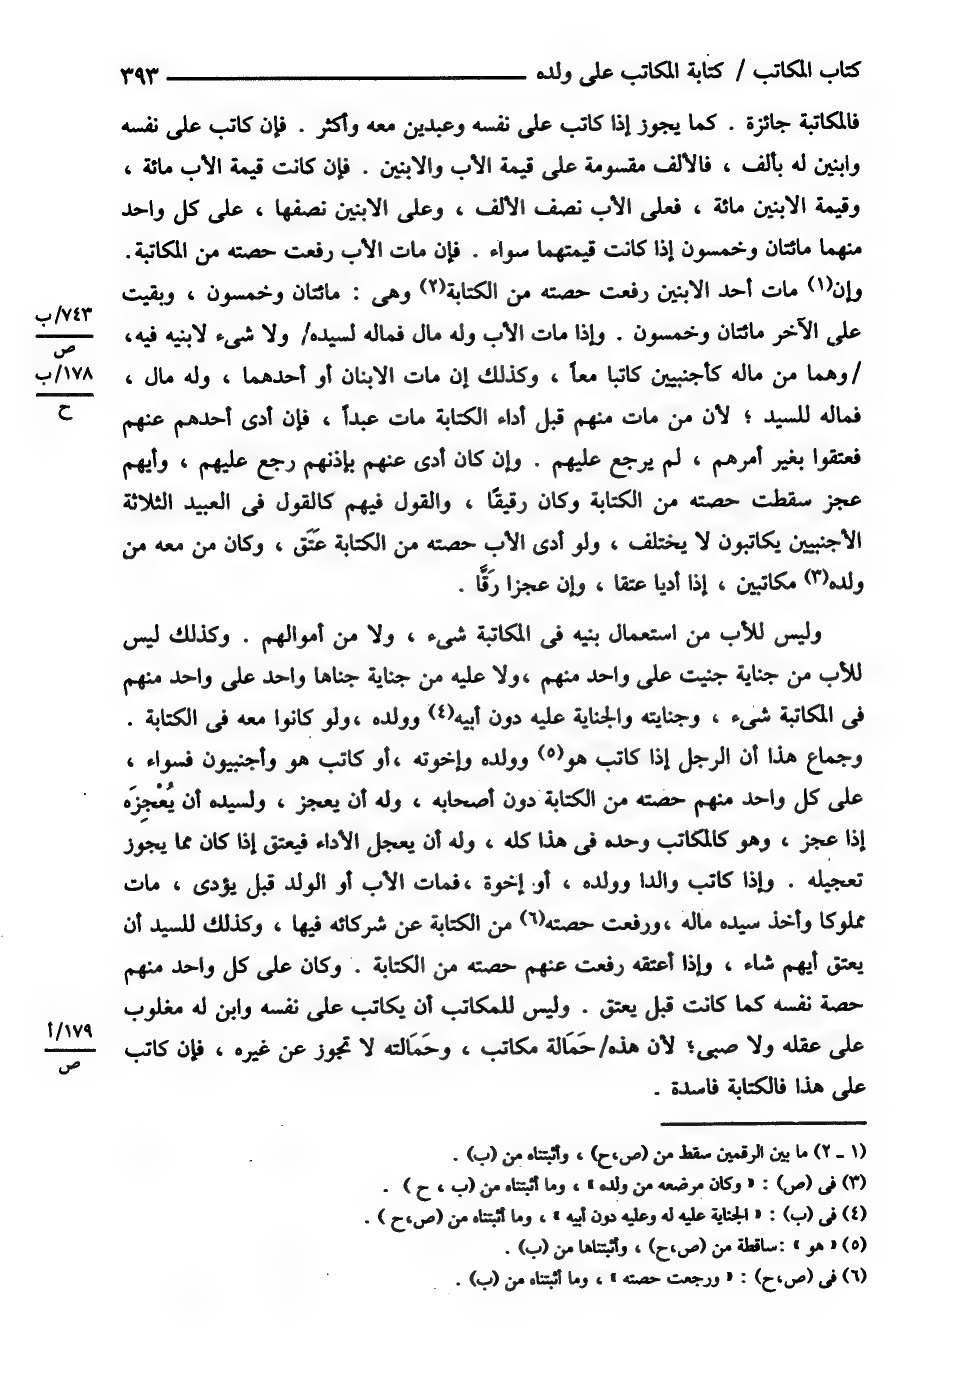 كتاب المكاتب / كتابة المكاتب على ولده ٣٩٣
فالمكاتبة جائزة . كما يجوز إذا كاتب على نفسه وعبدين معه وأكثر . فإن كاتب على نفسه
وابنين له بألف ، فالألف مقسومة على قيمة الأب والابنين . فإن كانت قيمة الأب مائة ،
وقيمة الابنين مائة ، فعلى الأب نصف الألف ، وعلى الابنين نصفها ، على كل واحد
منهما مائتان وخمسون إذا كانت قيمتهما سواء . فإن مات الأب رفعت حصته من المكاتبة.
وإن(١) مات أحد الابنين رفعت حصته من الكتابة(٢) وهى : مائتان وخمسون ، وبقيت
على الآخر مائتان وخمسون . وإذا مات الأب وله مال فماله لسيده/ ولا شىء لابنيه فيه،
٧٤٣/ب
ص
/وهما من ماله كأجنبيين كاتبا معاً ، وكذلك إن مات الابنان أو أحدهما ، وله مال ،
١٧٨/ب
ح
فماله للسيد ؛ لأن من مات منهم قبل أداء الكتابة مات عبداً ، فإن أدى أحدهم عنهم
فعتقوا بغير أمرهم ، لم يرجع عليهم . وإن كان أدى عنهم بإذنهم رجع عليهم ، وأيهم
عجز سقطت حصته من الكتابة وكان رقيقًا ، والقول فيهم كالقول فى العبيد الثلاثة
الأجنبيين يكاتبون لا يختلف ، ولو أدى الأب حصته من الكتابة عَتَق ، وكان من معه من
ولده(٣) مكاتبين ، إذا أديا عتقا ، وإن عجزا رَقَّا .
وليس للأب من استعمال بنيه فى المكاتبة شىء ، ولا من أموالهم . وكذلك ليس
للأب من جناية جنيت على واحد منهم ،ولا عليه من جناية جناها واحد على واحد منهم
فى المكاتبة شىء ، وجنايته والجناية عليه دون أبيه(٤) وولده ،ولو كانوا معه فى الكتابة .
وجماع هذا أن الرجل إذا كاتب هو(٥) وولده وإخوته ،أو كاتب هو وأجنبيون فسواء ،
على كل واحد منهم حصته من الكتابة دون أصحابه ، وله أن يعجز ، ولسيده أن يُعْجِزَه
إذا عجز ، وهو كالمكاتب وحده فى هذا كله ، وله أن يعجل الأداء فيعتق إذا كان مما يجوز
تعجيله . وإذا كاتب والدا وولده ، أو إخوة ،فمات الأب أو الولد قبل يؤدى ، مات
مملوكا وأخذ سيده ماله ،ورفعت حصته(٦) من الكتابة عن شركائه فيها ، وكذلك للسيد أن
يعتق أيهم شاء ، وإذا أعتقه رفعت عنهم حصته من الكتابة . وكان على كل واحد منهم
حصة نفسه كما كانت قبل يعتق . وليس للمكاتب أن يكاتب على نفسه وابن له مغلوب
على عقله ولا صبى؛ لأن هذه/حَمَالة مكاتب ، وحَمَالته لا تجوز عن غيره ، فإن كاتب
١٧٩/أ
ص
على هذا فالكتابة فاسدة .
(١ ـ ٢) ما بين الرقمين سقط من (ص،ح) ، وأثبتناه من (ب) .
(٣) فى (ص) : « وكان مرضعه من ولده » ، وما أثبتناه من (ب ، ح ) .
(٤) فى (ب) : « الجناية عليه له وعليه دون أبيه » ، وما أثبتناه من (ص،ح ) .
(٥) « هو » :ساقطة من (ص،ح) ، وأثبتناها من (ب) .
(٦) فى (ص،ح) : « ورجعت حصته » ، وما أثبتناه من (ب) .